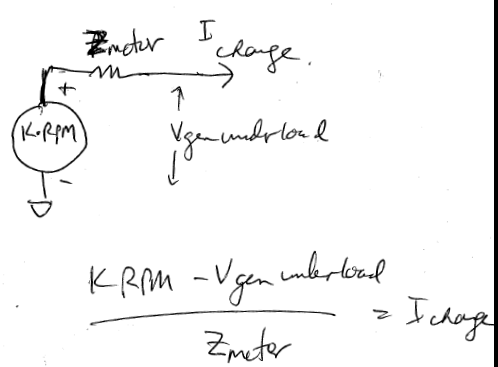 Zmotor
I charge.
+
K·RPM
Vgen underload
-
K RPM - Vgen underload
Zmotor
= I charge